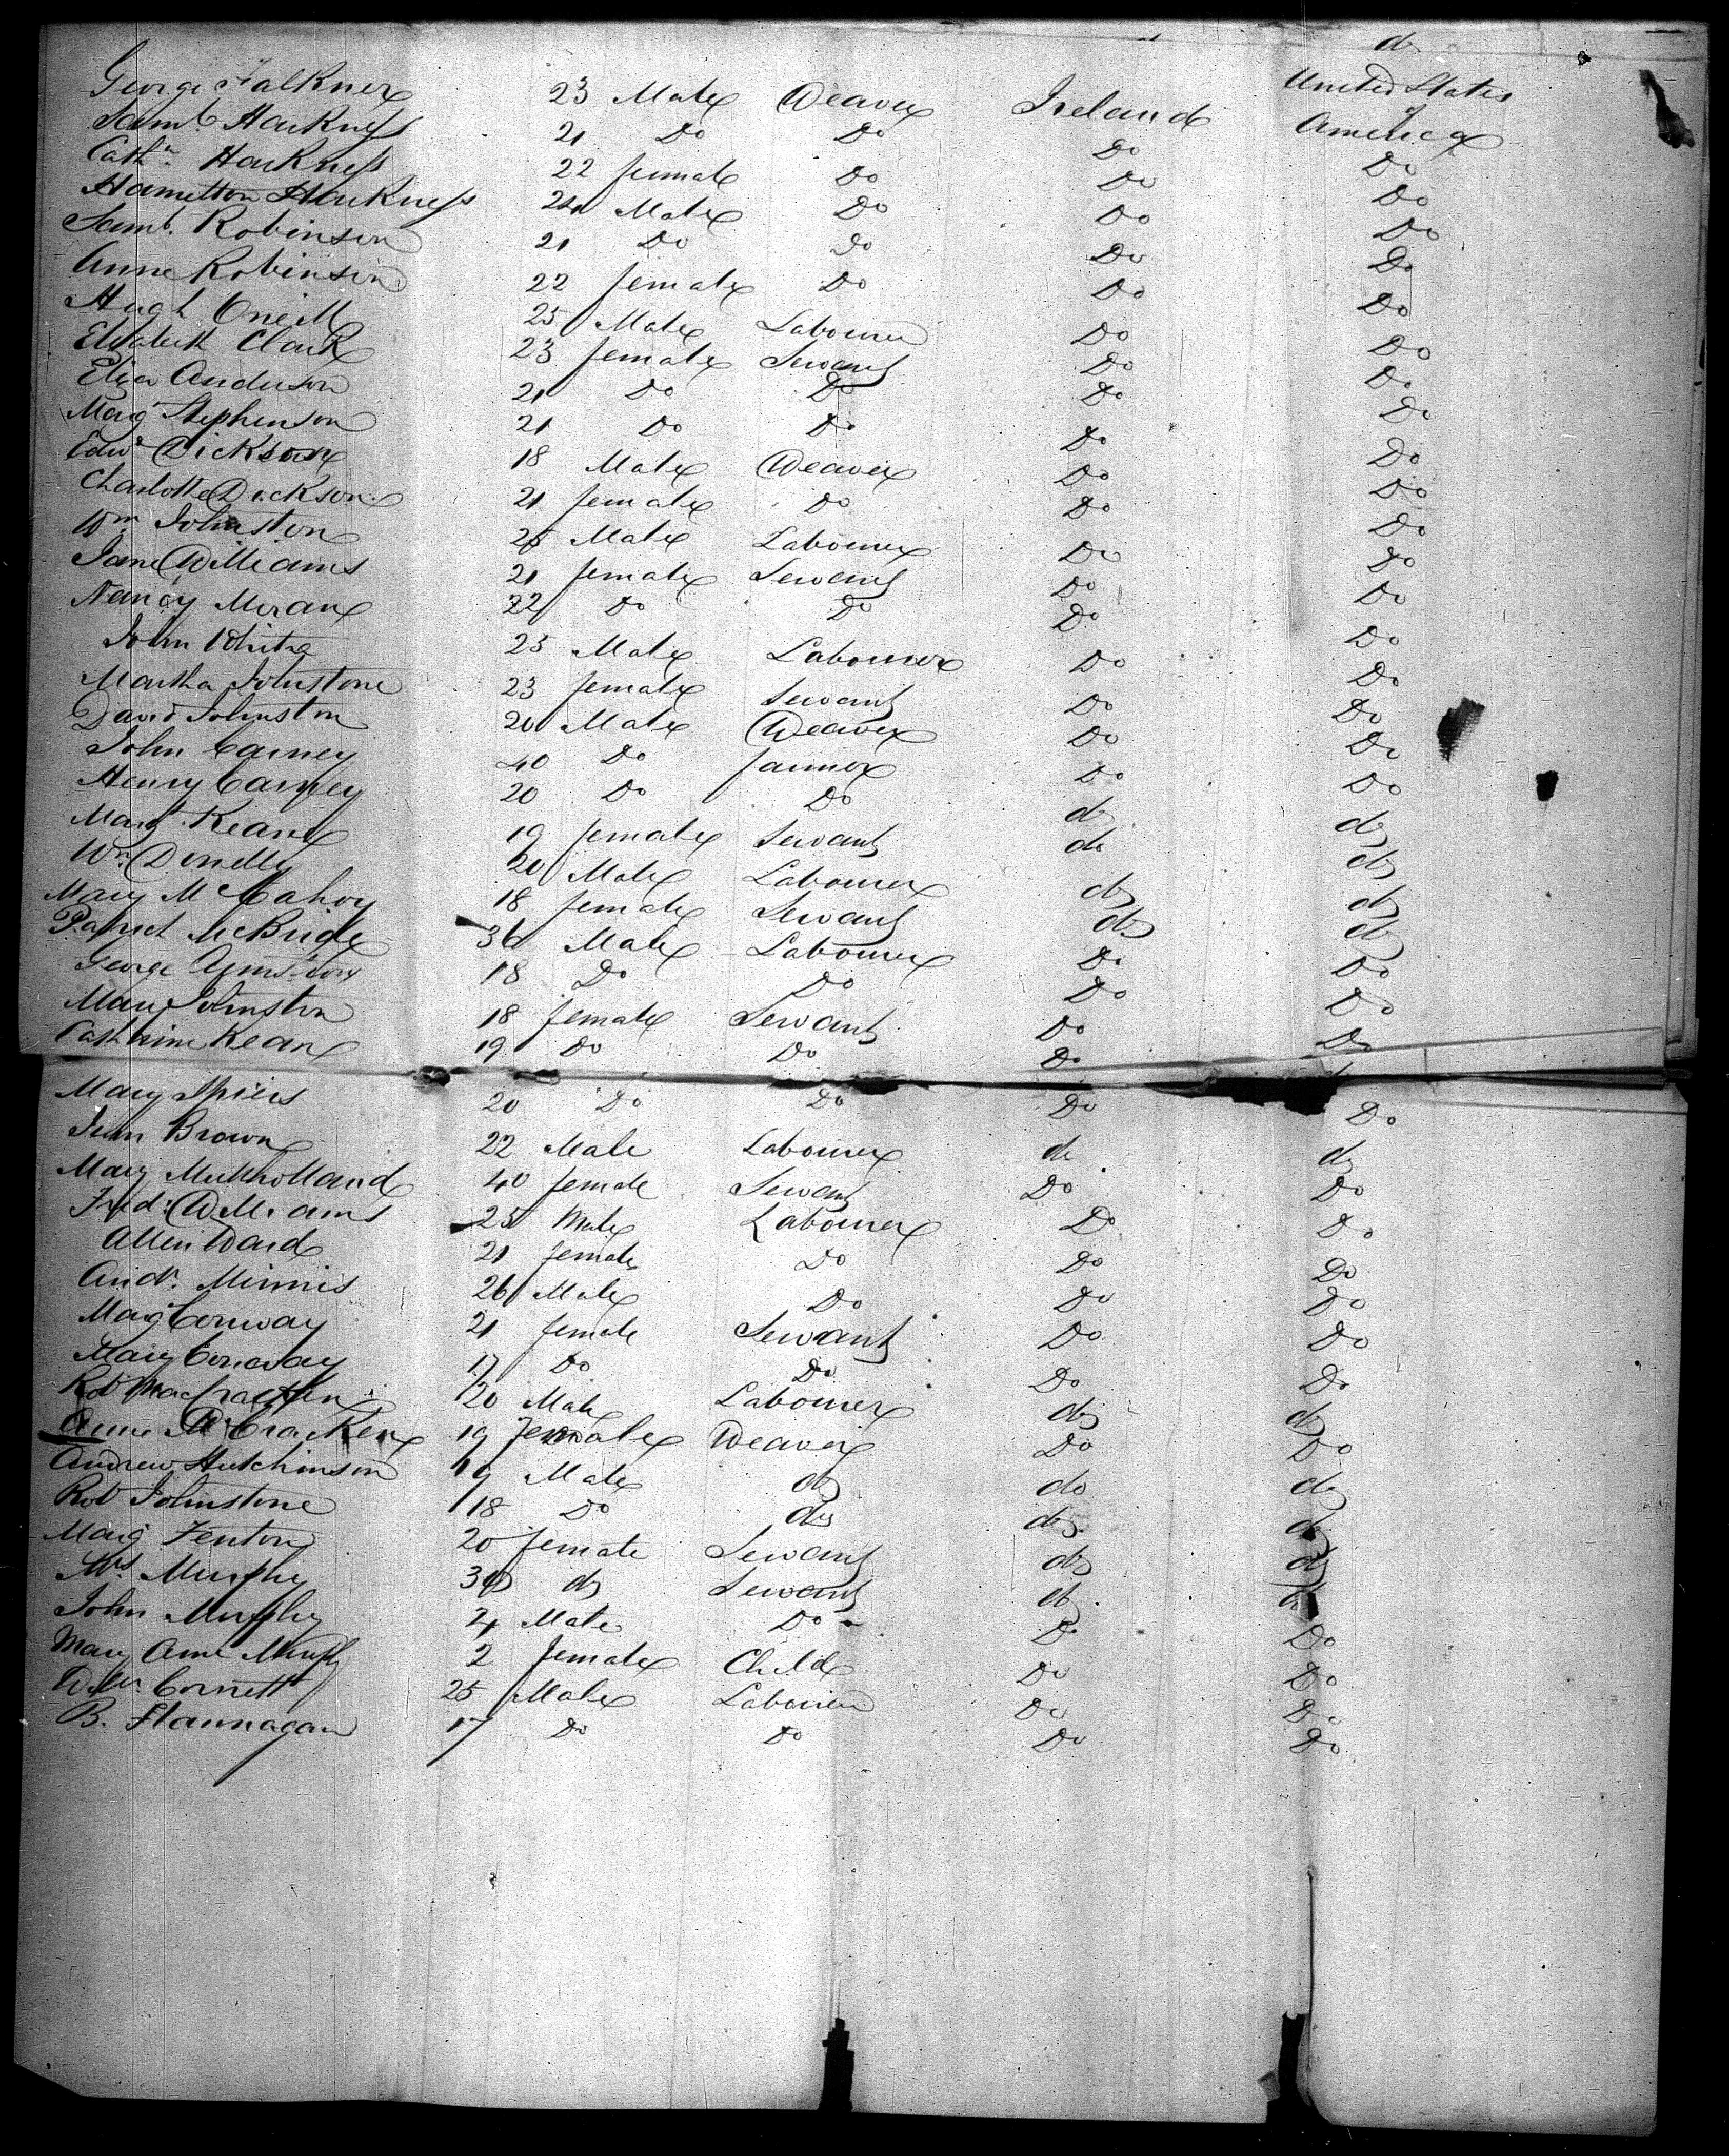 do
George Falkner 23 Male Weaver Ireland United States of America
Saml. Harkness 21 Do Do Do Do
Cathn. Harkness 22 female Do Do Do
Hamilton Harkness 24 Male Do Do Do
Saml. Robinson 21 Do Do Do Do
Anne Robinson 22 female Do Do Do
Hugh Oneill 25 Male Labourer Do Do
Elizabeth Clark 23 female Servant Do Do
Eliza Anderson 21 Do Do Do Do
Marg Stephenson 21 Do Do Do Do
Edwd Dickson 18 Male Weaver Do Do
Charlotte Dickson 21 female Do Do Do
Wm Johnston 25 Male Labourer Do Do
Jane Williams 21 female Servant Do Do
Nancy Moran 22 Do Do Do Do
John White 25 Male Labourer Do Do
Martha Johnstone 23 female Servant Do Do
David Johnston 20 Male Weaver Do Do
John Carney 40 Do farmer Do Do
Henry Carney 20 Do Do do do
Margt. Kean 19 female Servant do do
Wm. Donelly 20 Male Labourer do do
Mary McMahon 18 female Servant do do
Patrick McBride 36 Male Labourer Do Do
George 18 Do Do Do Do
Mary Johnston 18 female Servant Do Do
Catherine Kean 19 Do Do Do
Mary Spiers 20 Do Do Do Do
Brown 22 Male Labourer do do
Mary Mullholland 40 female Servant Do Do
Fredk. Williams 25 Male Labourer Do Do
Allen Ward 21 female Do Do Do
Andr. Minnis 26 Male Do Do Do
Marg Conway 21 female Servant Do Do
Mary Conway 17 Do Do Do Do
Robt MacCracken 20 Male Labourer do do
Anne McCracken 19 Female Weaver Do Do
Andrew Hutchinson 19 Male do do do
Robt Johnstone 18 Do do do do
Marg Fenton 20 female Servant do do
Mrs Murphy 30 do Servant do do
John Murphy 4 Male Do Do Do
Mary Anne Murphy 2 female Child Do Do
Cornett 25 Male Labourer Do Do
B. Flannagan 17 Do Do Do Do